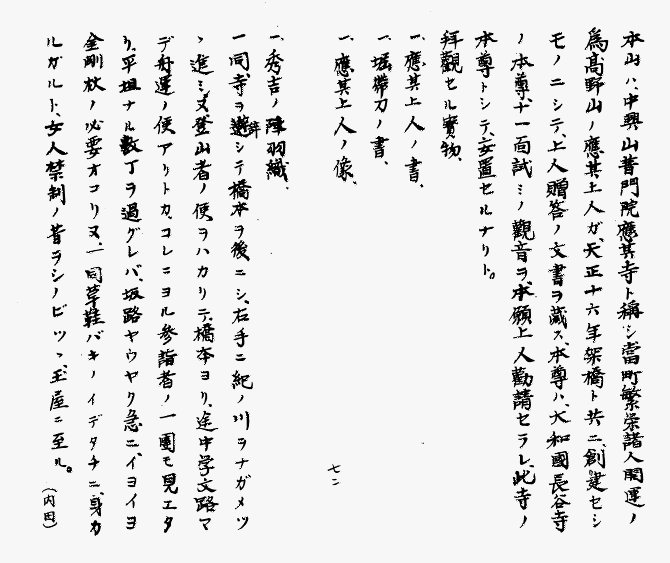 本山ハ、中興山普門院應其寺ト稱シ當町繁栄諸人開運ノ
為高野山ノ應其上人ガ、天正十六年架橋ト共ニ、創建セシ
モノニシテ、上人贈答ノ文書ヲ藏ス、本尊ハ、大和國長谷寺
ノ本尊十一面試ミノ觀音ヲ、本願上人勸請セラレ、此寺ノ
本尊トシテ、安置セルナリト。
拜觀セル寳物、
一、應其上人ノ書、
一、堀帶刀ノ書、
一、應其上人ノ像、
七二
一、秀吉ノ陣羽織、
一同、寺ヲ辞シテ橋本ヲ後ニシ、右手ニ紀ノ川ヲナガメツ
ヽ進ミ又登山者ノ便ヲハカリテ、橋本ヨリ、途中学文路マ
デ舟運ノ便アリトカ、コレニヨル参詣者ノ一團モ見エタ
リ、平坦ナル數丁ヲ過グレバ、坂路ヤウヤク急ニ、イヨイヨ
金剛杖ノ必要オコリヌ、一同草鞋バキノイデタチニ、身カ
ルガルト、女人禁制ノ昔ヲシノビツヽ、玉屋ニ至ル。
(内田)